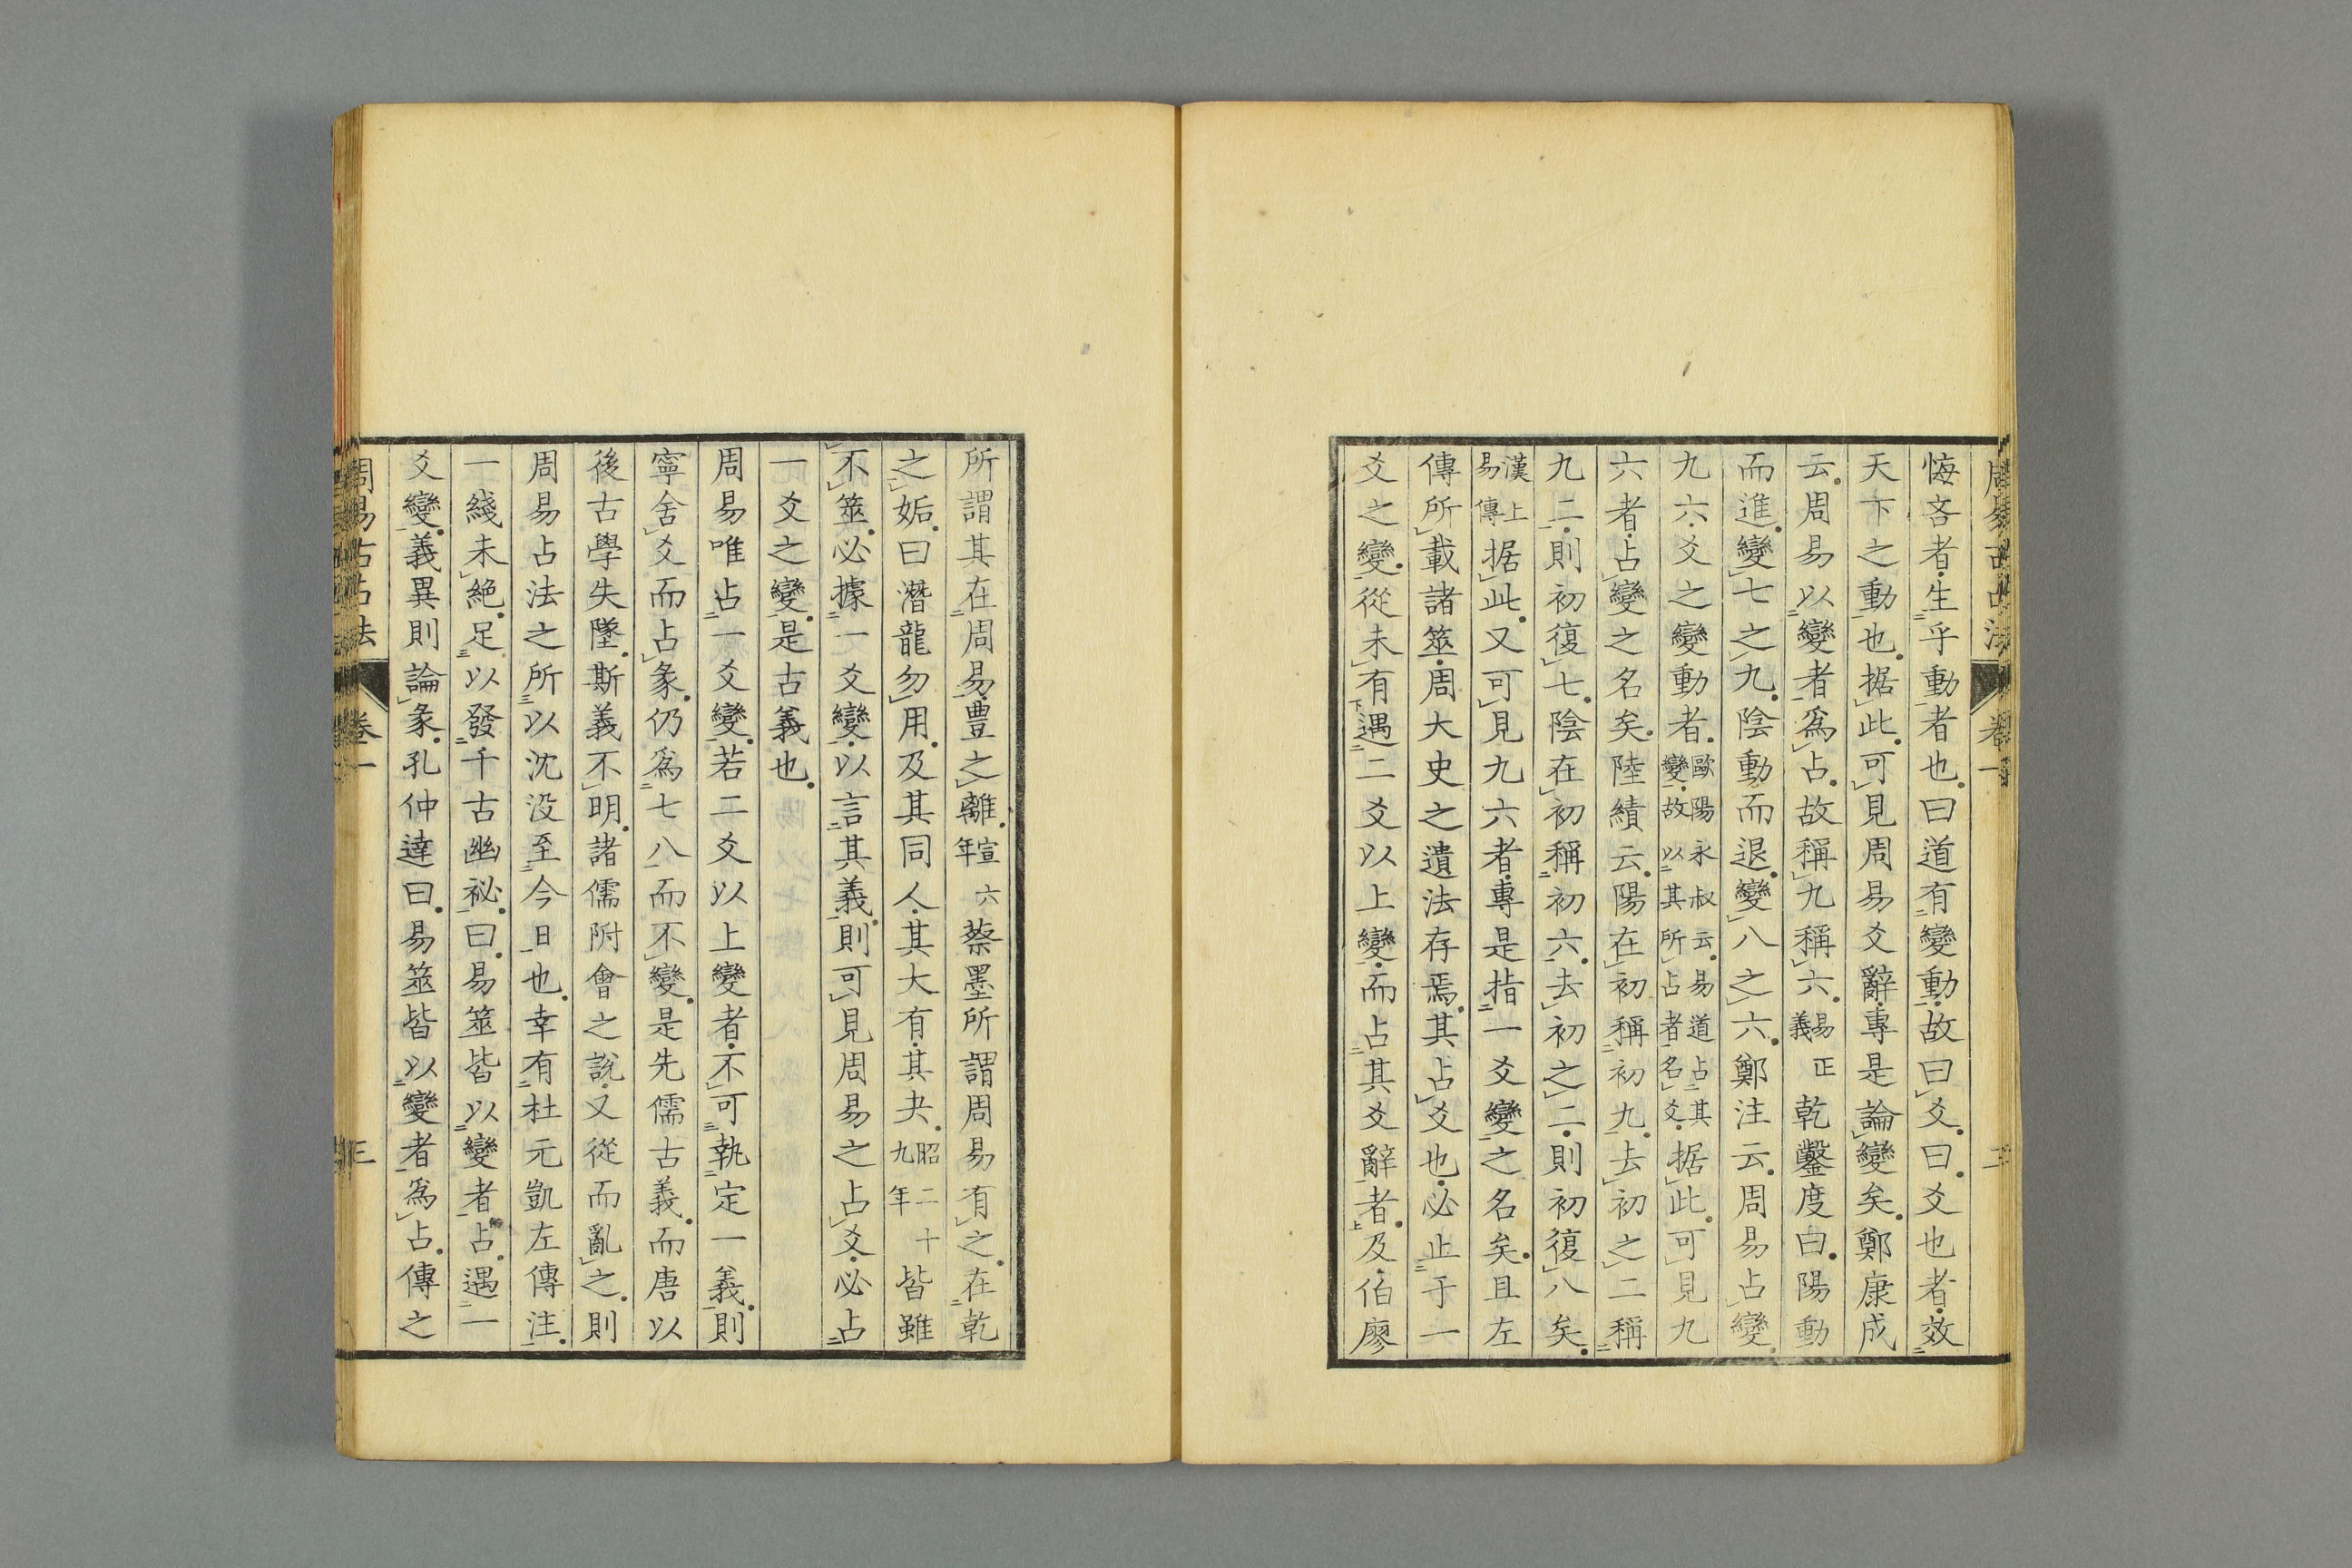 周易古占法 卷一 二
悔吝者生乎動者也曰道有變動故曰爻曰爻也者效
天下之動也据此可見周易爻辭專是論變矣鄭康成
云周易以變者爲占故稱九稱六易正義乾鑿度曰陽動
而進變七之九陰動而退變八之六鄭注云周易占變
九六爻之變動者歐陽永叔云易道占其變故以其所占者名爻据此可見九
六者占變之名矣陸績云陽在初稱初九去初之二稱
九二則初復七陰在初稱初六去初之二則初復八矣
漢上易傳据此又可見九六者專是指一爻變之名矣且左
傳所載諸筮周大史之遺法存焉其占爻也必止于一
爻之變從未有遇二爻以上變而占其爻辭者及伯廖
所謂其在周易豊之離宣六年蔡墨所謂周易有之在乾
之姤曰潛龍勿用及其同人其大有其夬昭二十九年皆雖
不筮必據一爻變以言其義則可見周易之占爻必占
一爻之變是古義也
周易唯占一爻變若二爻以上變者不可執定一義則
寧舍爻而占彖仍爲七八而不變是先儒古義而唐以
後古學失墜斯義不明諸儒附會之說又從而亂之則
周易占法之所以沈没至今日也幸有杜元凱左傳注
一綫未絕足以發千古幽祕曰易筮皆以變者占遇一
爻變義異則論彖孔仲達曰易筮皆以變者爲占傳之
周易古占法 卷一 三